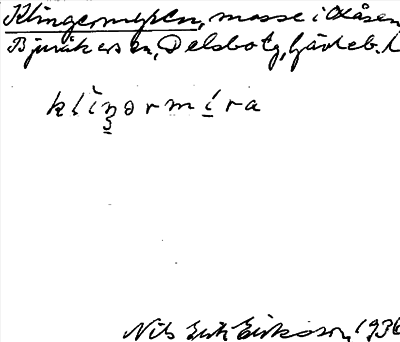 Klingermyren, mosse i Åsen
Bjuråkers sn, Delsbotg, Gävleb. l
klìŋərmíra
Nils Erik Eriksson, 1936